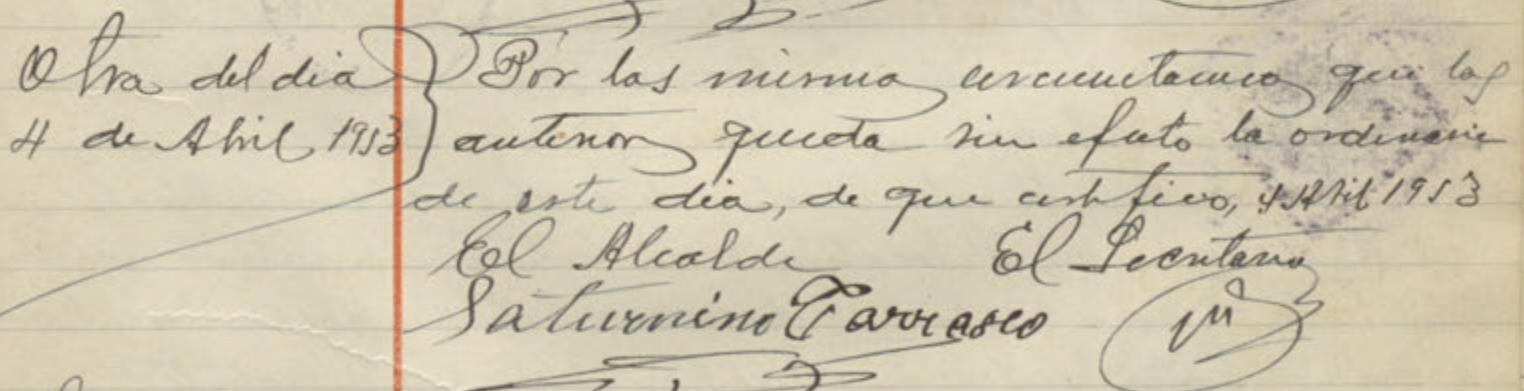 Otra del dia
4 de Abril 1953
Por las misma circunstancia que las
anterior queda sin efecto la ordinaria
de este dia, de que certifico, 4 Abril 1953
El Alcalde El Secretario
Saturnino Carrasco